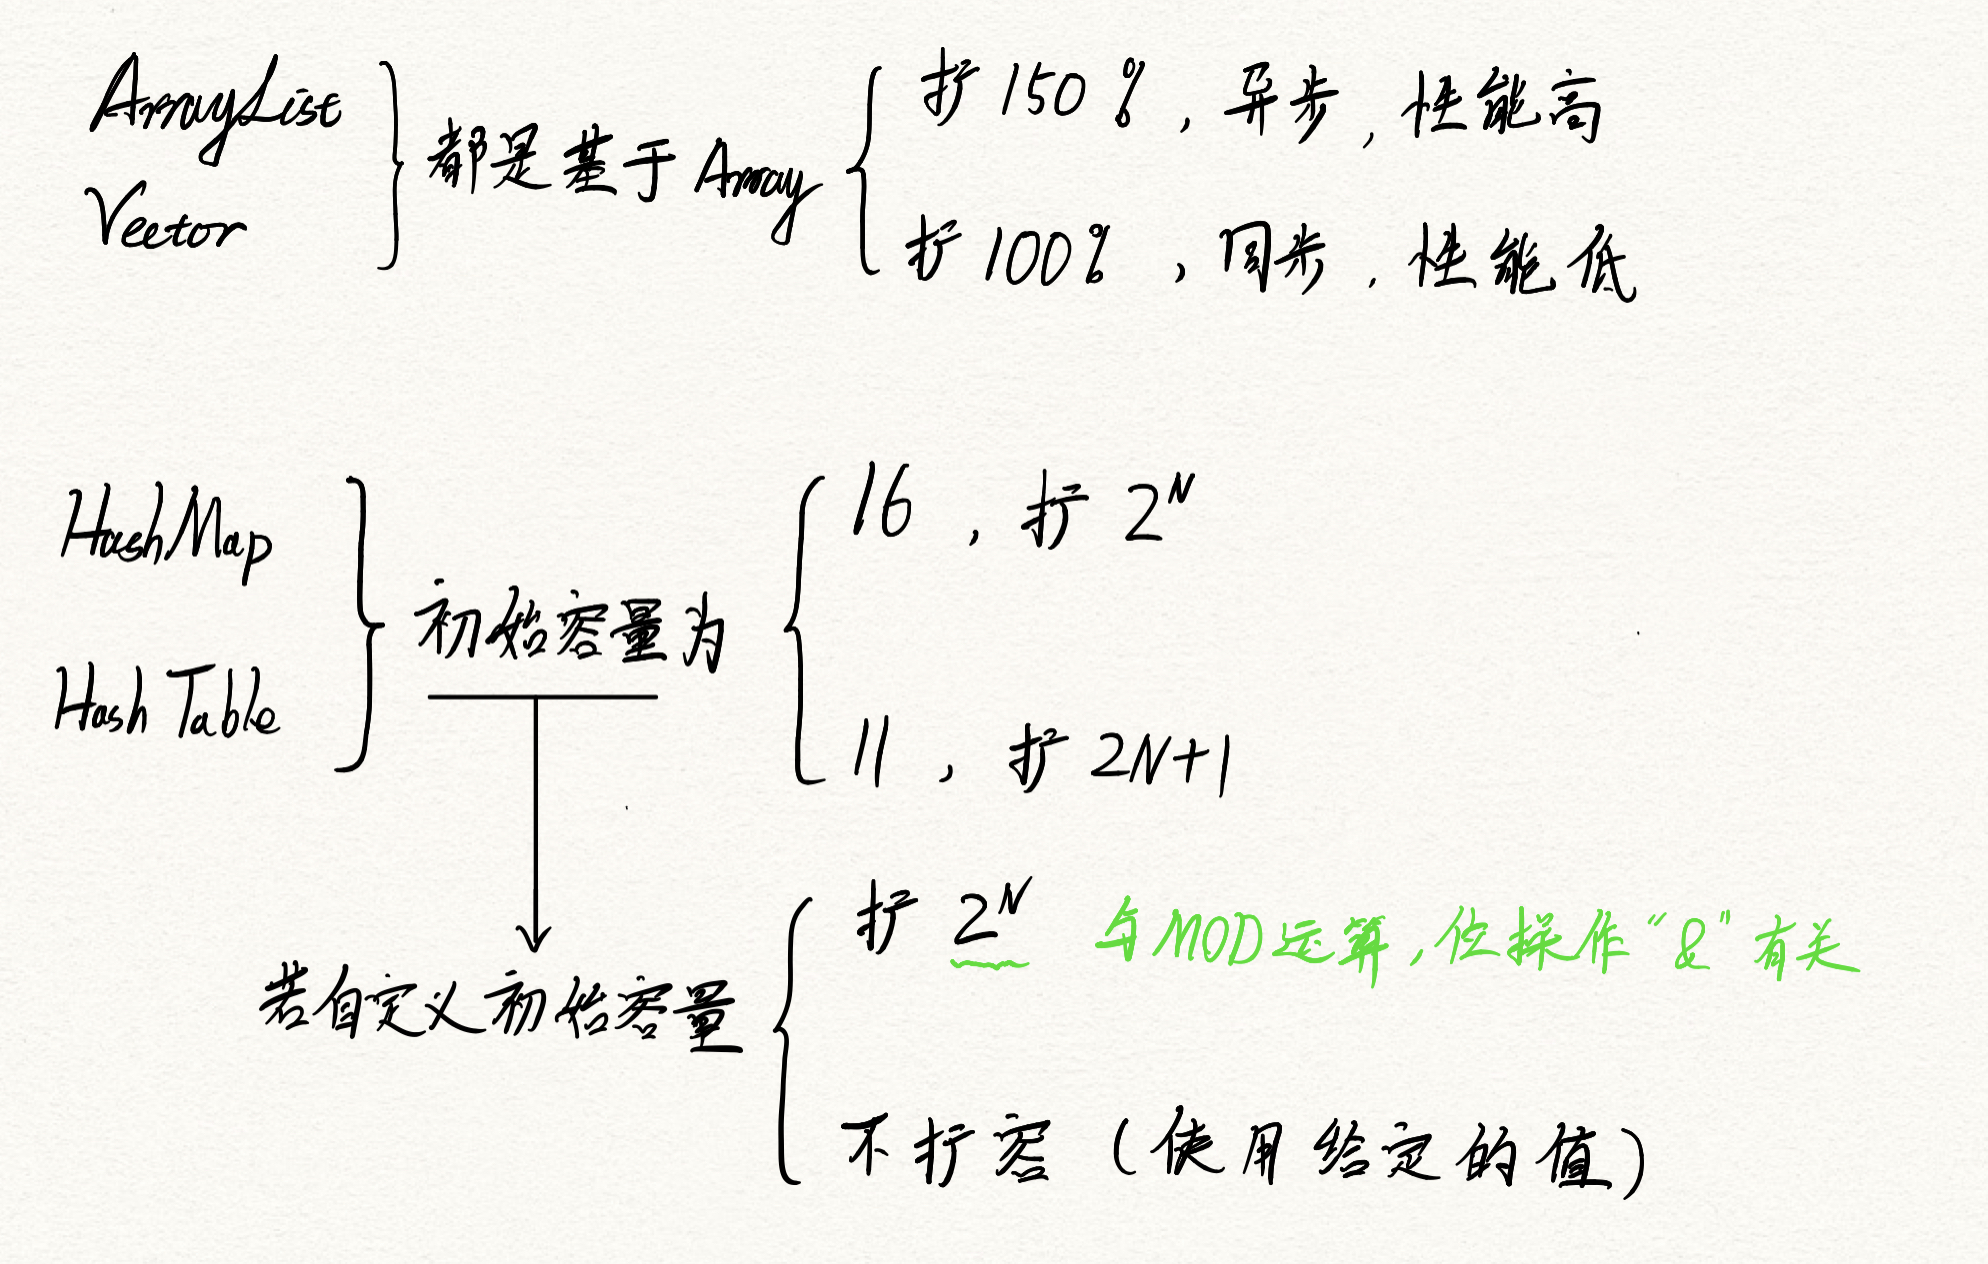 ArrayList
Vector
都是基于 Array
扩 150%, 异步, 性能高
扩 100%, 同步, 性能低
HashMap
HashTable
初始容量为
16, 扩 2^N
11, 扩 2N+1
若自定义初始容量
扩 2^N 与MOD运算,位操作“&”有关
不扩容 (使用给定的值)